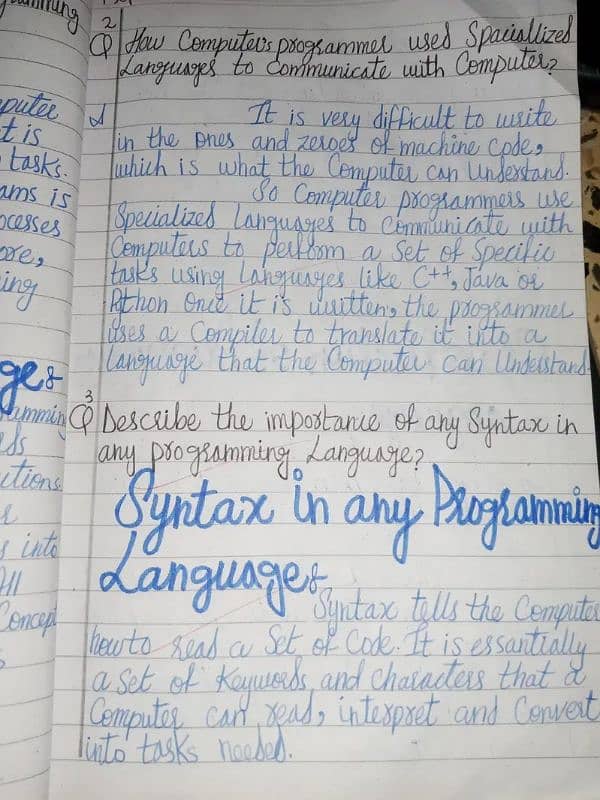 2
Q How Computers programmer used Spaciallized
Languages to Communicate with Computer?
It is very difficult to write
in the ones and zeroes of machine code,
which is what the Computer can Understand.
So Computer programmers use
Specialized Languages to Communicate with
Computers to perform a Set of Specific
tasks using Languages like C++, Java or
Python Once it is written, the programmer
uses a Compiler to translate it into a
Language that the Computer can Understand
3
Q Describe the importance of any Syntax in
any programming Language?
Syntax in any Programming
Language:
Syntax tells the Computer
how to read a Set of Code. It is essantially
a set of Keywords and Characters that a
Computer can read, interpret and Convert
into tasks needed.
puter
t is
tasks.
ams is
ocesses
ore,
ing
ge:
amming
ctions
s into
All
Concept